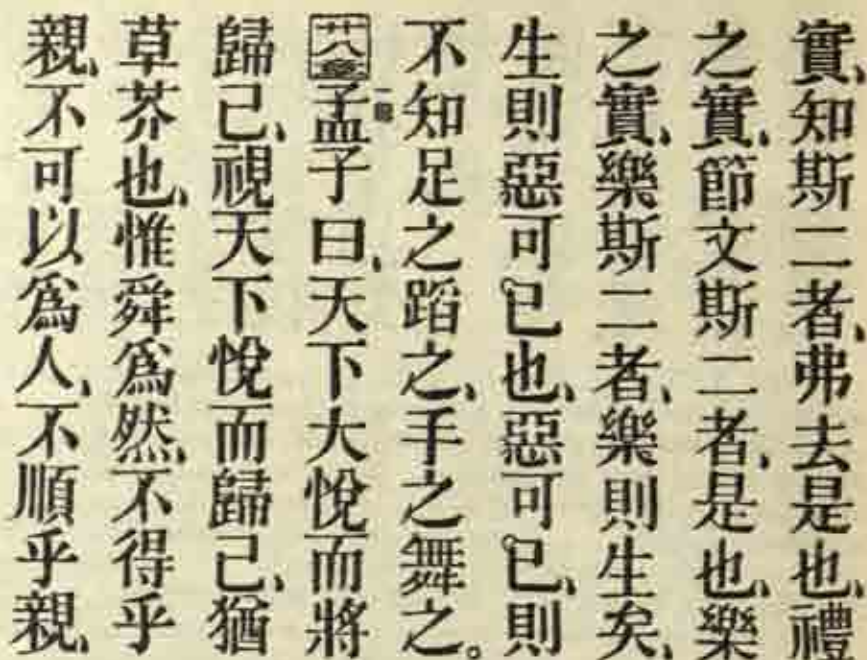 實、知斯二者、弗去是也、禮
之實、節文斯二者、是也、樂
之實、樂斯二者、樂則生矣、
生則惡可已也、惡可已、則
不知足之蹈之、手之舞之。
廿八 孟子曰、天下大悅而將
歸己、視天下悅而歸己、猶
草芥也、惟舜爲然、不得乎
親、不可以爲人、不順乎親、